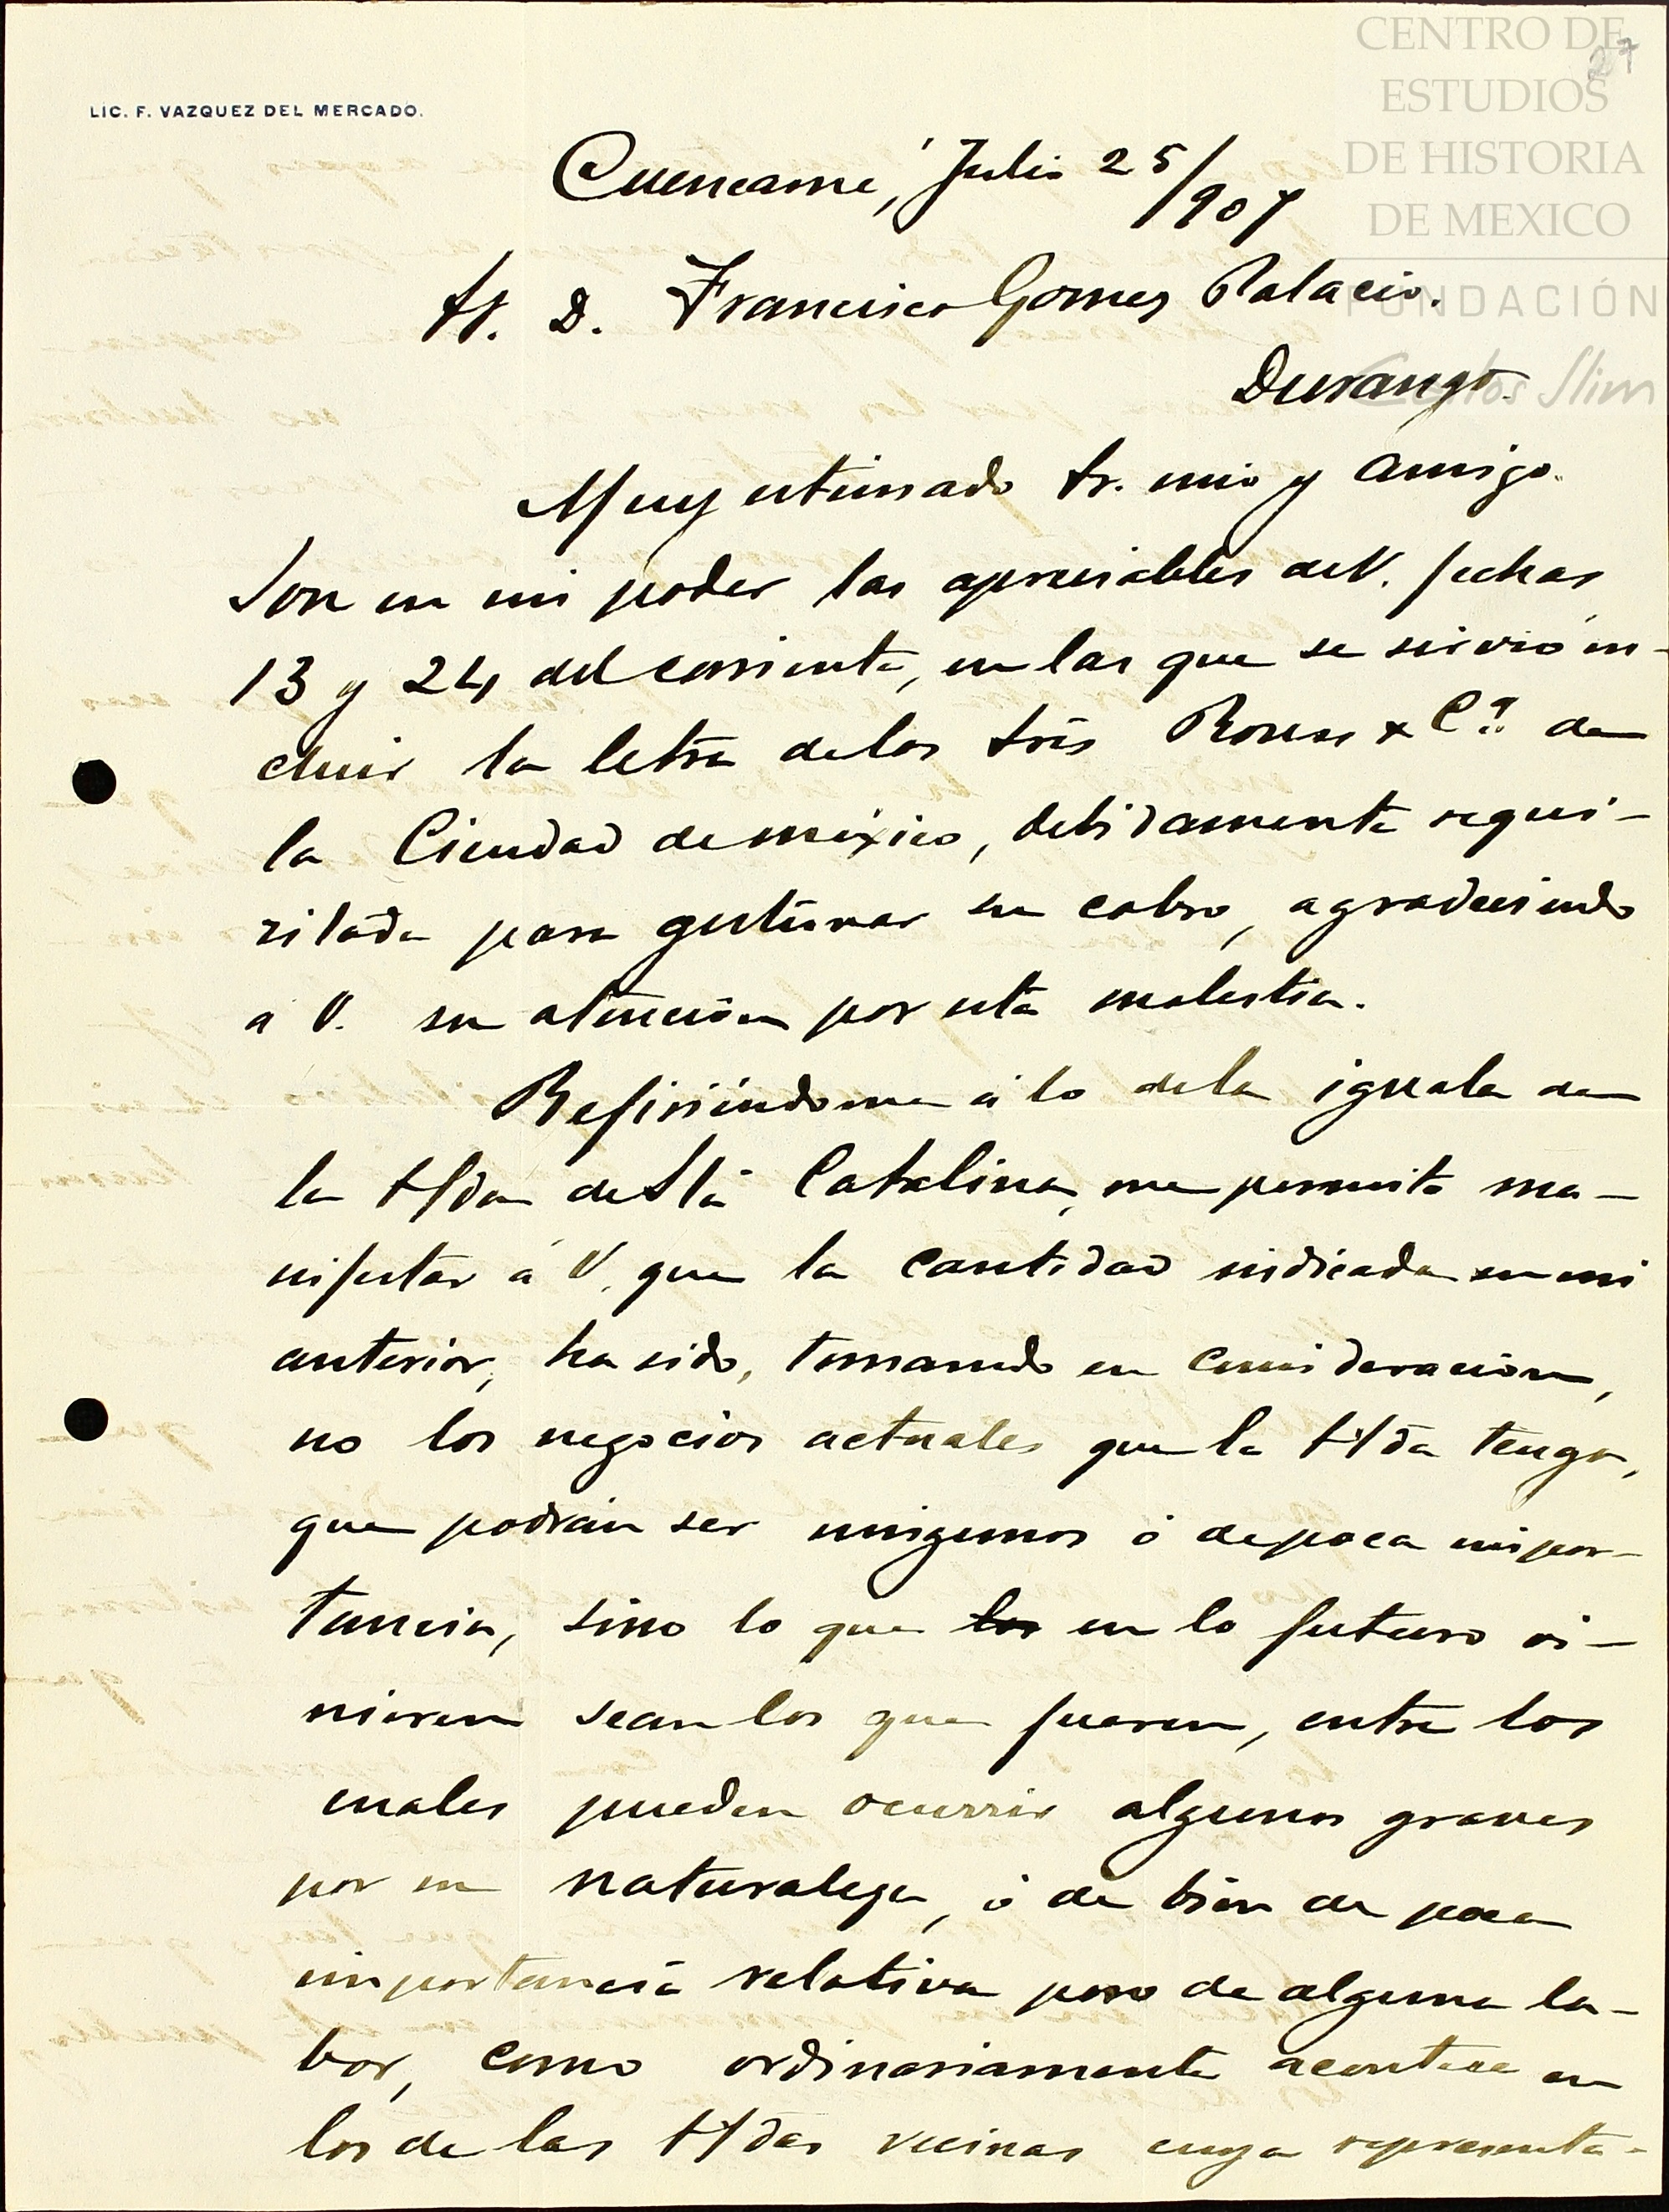 CENTRO DE
ESTUDIOS
DE HISTORIA
DE MEXICO
FUNDACIÓN
Carlos Slim
27
LIC. F. VAZQUEZ DEL MERCADO.
Cuencamé, Julio 25/907
Sr. D. Francisco Gomez Palacio.
Durango.
Muy estimado Sr. mio y amigo.
Son en mi poder las apreciables de V. fechas
13 y 24 del corriente, en las que se sirvió in-
cluir la letra de los Sres y Cª. de
la Ciudad de México, debidamente requi-
sitada para gestionar su cobro, agradeciendo
a V. su atención por esta molestia.
Refiriéndome á lo de la iguala de
la H/da de Sta Catalina, me permito ma-
nifestar á V. que la cantidad indicada en mi
anterior, ha sido, tomando en consideracion,
no los negocios actuales que la H/da tenga,
que podrán ser ningunos ó de poca impor-
tancia, sino lo que los en lo futuro vi-
nieren sean los que fueren, entre los
cuales pueden ocurrir algunos graves
por su naturaleza, ó de bien de poca
importancia relativa pero de alguna la-
bor, como ordinariamente acontece en
los de las H/das vecinas cuya representa-